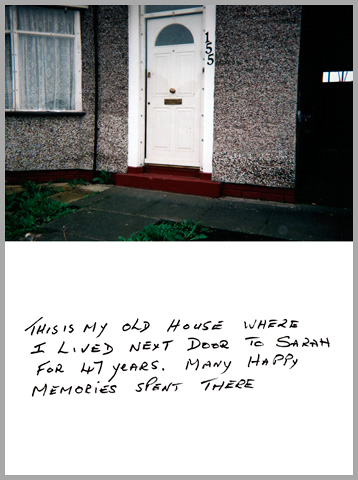 155
THIS IS MY OLD HOUSE WHERE
I LIVED NEXT DOOR TO SARAH
FOR 47 YEARS. MANY HAPPY
MEMORIES SPENT THERE